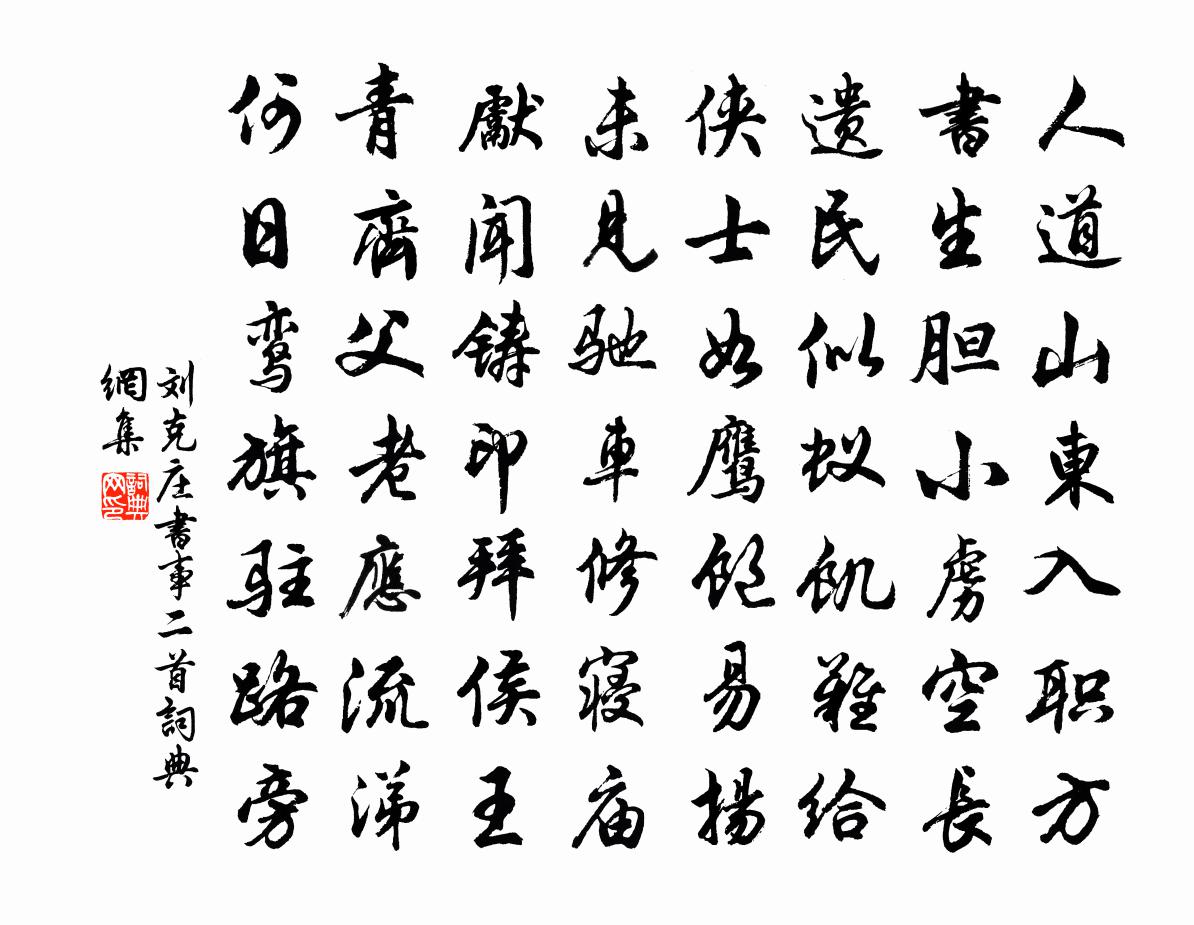 人道山東入职方
書生胆小虜空長
遗民似蚁飢難給
侠士如鷹飽易揚
未見驰車修寝庙
獻闻铸印拜侯王
青齊父老應流涕
何日鸾旗駐路旁
刘克庄書事二首詞典
網集
詞典网印